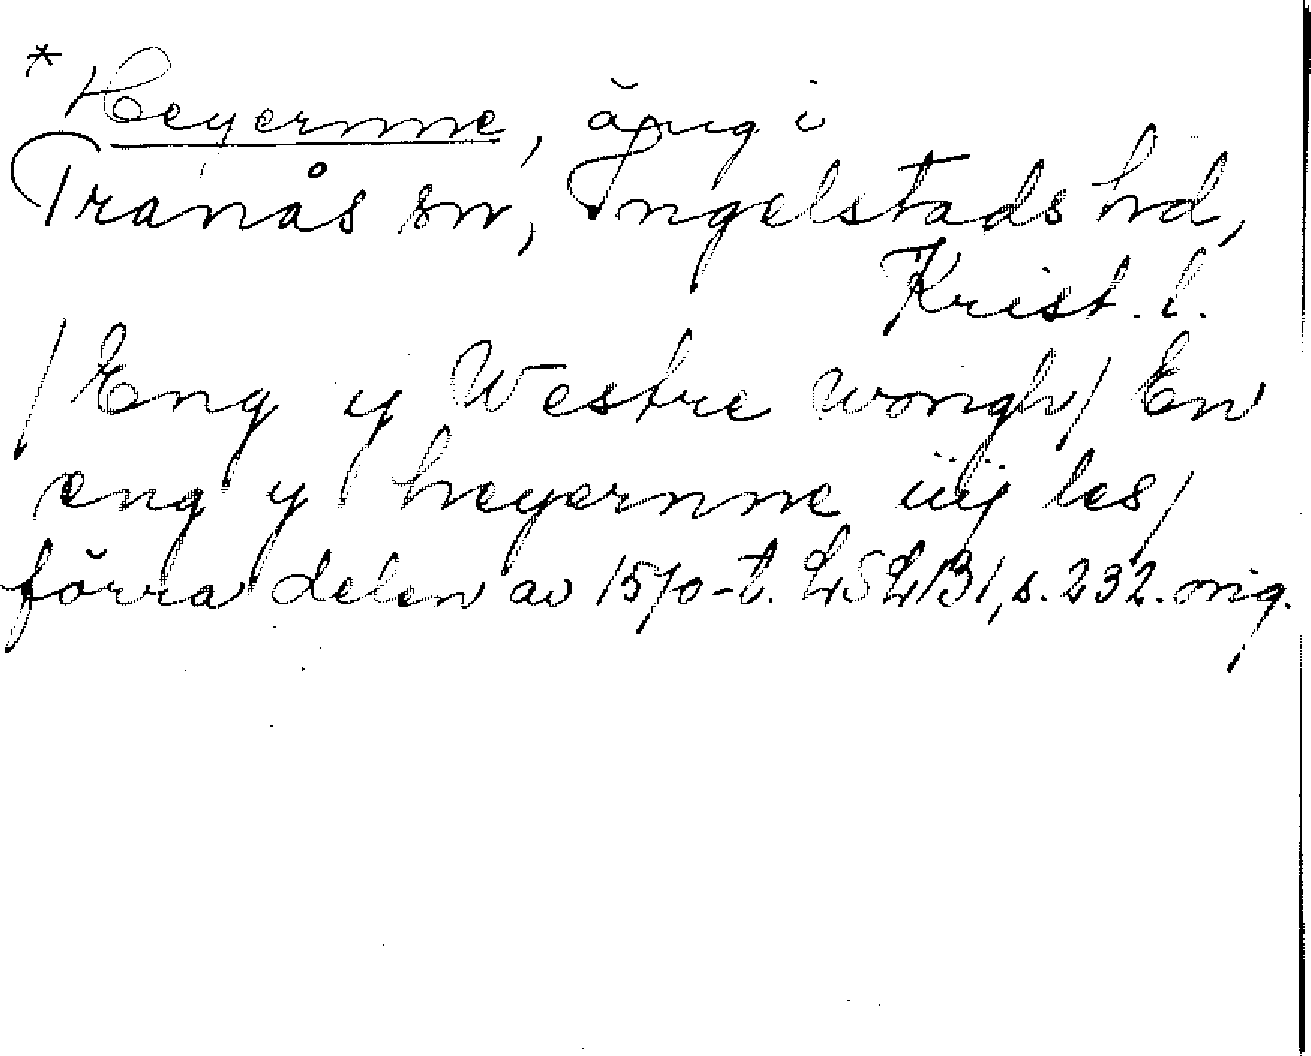 * Heyernne, äng i
Tranås sn, Ingelstads hd,
Krist. l.
/Eng y Westre wongh/ En
eng y heyernne iiij les/
förra delen av 1570-t. LSLB1, s. 232. orig.